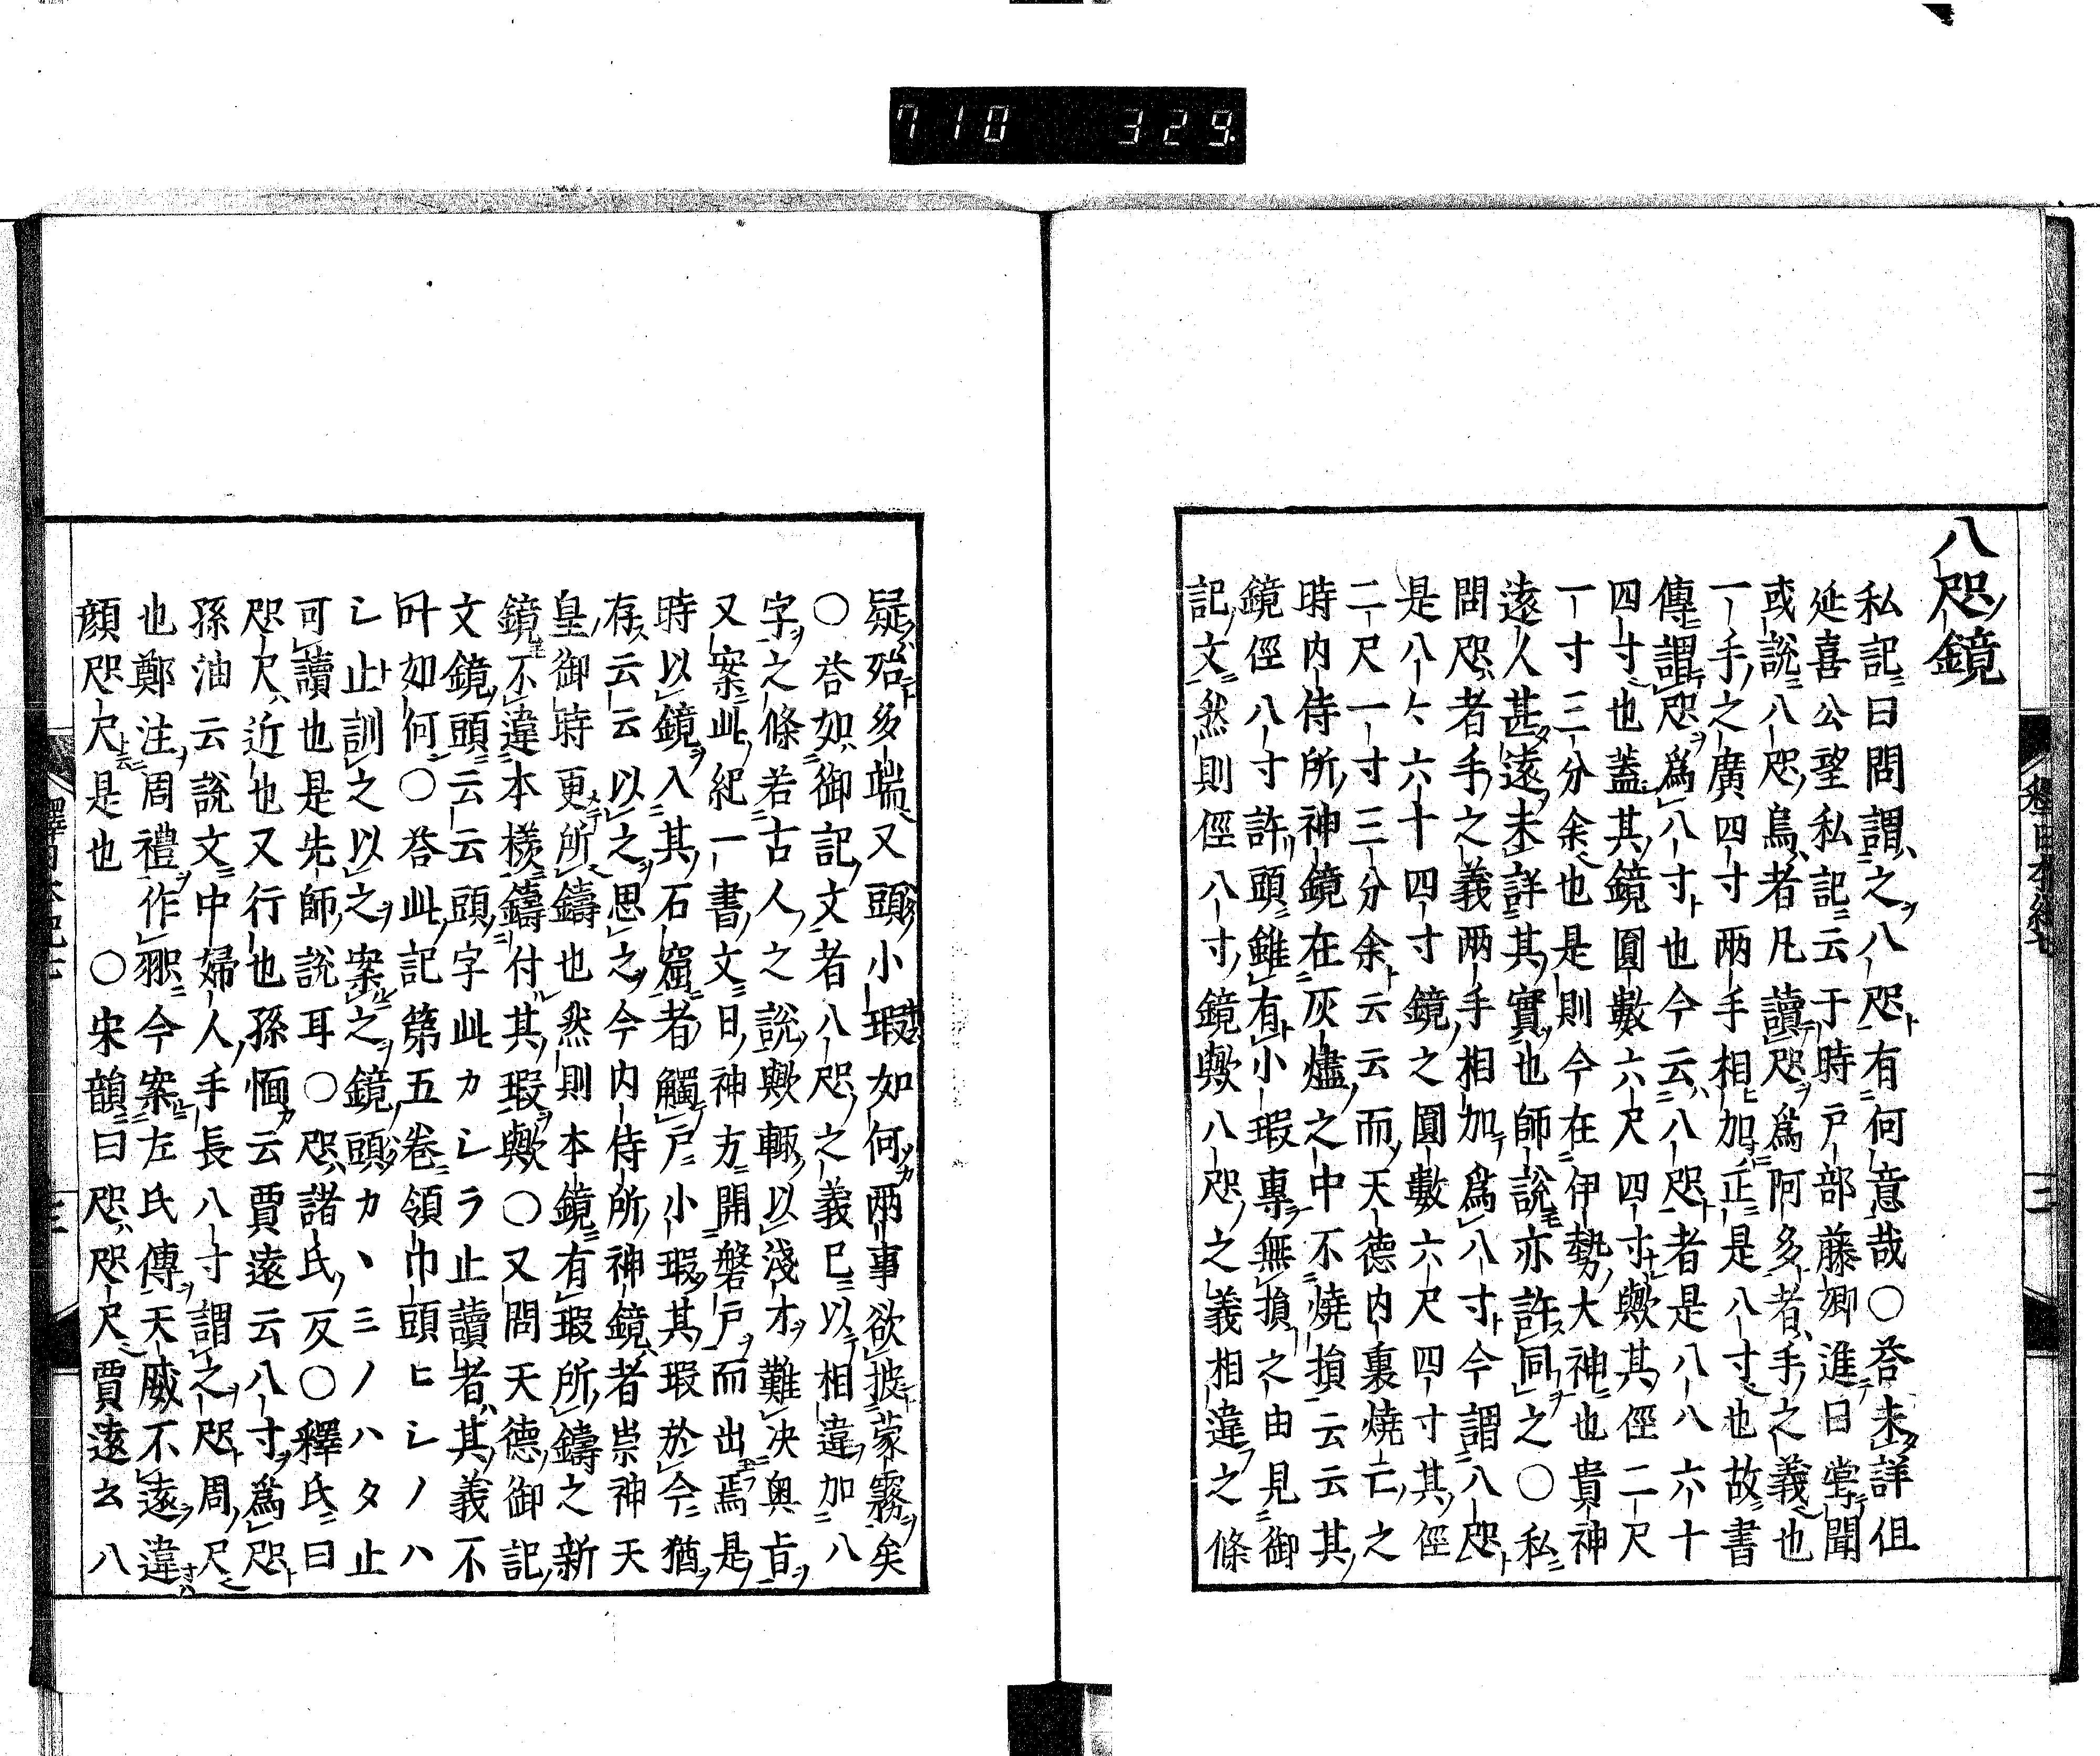 710 329.
八咫鏡
私記曰問謂之八咫有何意哉〇荅未詳但
延喜公望私記云于時戸部藤卿進曰嘗聞
或説八咫烏者凡讀咫爲阿多者手之義也
一手之廣四寸两手相加正是八寸也故書
傳謂咫爲八寸也今云八咫者是八八六十
四寸也蓋其鏡圓數六尺四寸歟其徑二尺
一寸三分余也是則今在伊勢大神也貴神
遠人甚遠未詳其實也師説亦許同之〇私
問咫者手之義两手相加爲八寸今謂八咫
是八々六十四寸鏡之圓數六尺四寸其徑
二尺一寸三分余云云而天德内裏燒亡之
時内侍所神鏡在灰燼之中不燒損云云其
鏡徑八寸許頭雖有小瑕專無損之由見御
記文然則徑八寸鏡歟八咫之義相違之條
釋日本紀七
三
疑殆多端又頭小瑕如何两事欲披蒙霧矣
〇荅如御記文者八咫之義已以相違加八
字之條若古人之説歟輙以淺才難决奥旨
又案此紀一書文曰神方開磐戸而出焉是
時以鏡入其石窟者觸戸小瑕其瑕於今猶
存云云以之思之今内侍所神鏡者崇神天
皇御時更所鑄也然則本鏡有瑕所鑄之新
鏡不違本樣鑄付其瑕歟〇又問天德御記
文鏡頭云云頭字此カレラ止讀者其義不
叶如何〇荅此記第五卷領巾頭ヒレノハ
レ止訓之以之案之鏡頭カヽミノハタ止
可讀也是先師説耳〇咫諸氏反〇釋氏曰
咫尺近也又行也孫愐云賈逵云八寸爲咫
孫油云説文中婦人手長八寸謂之咫周尺
也鄭注周禮作䏿今案左氏傳天威不遠違
顔咫尺是也　〇宋韻曰咫咫尺賈逵云八